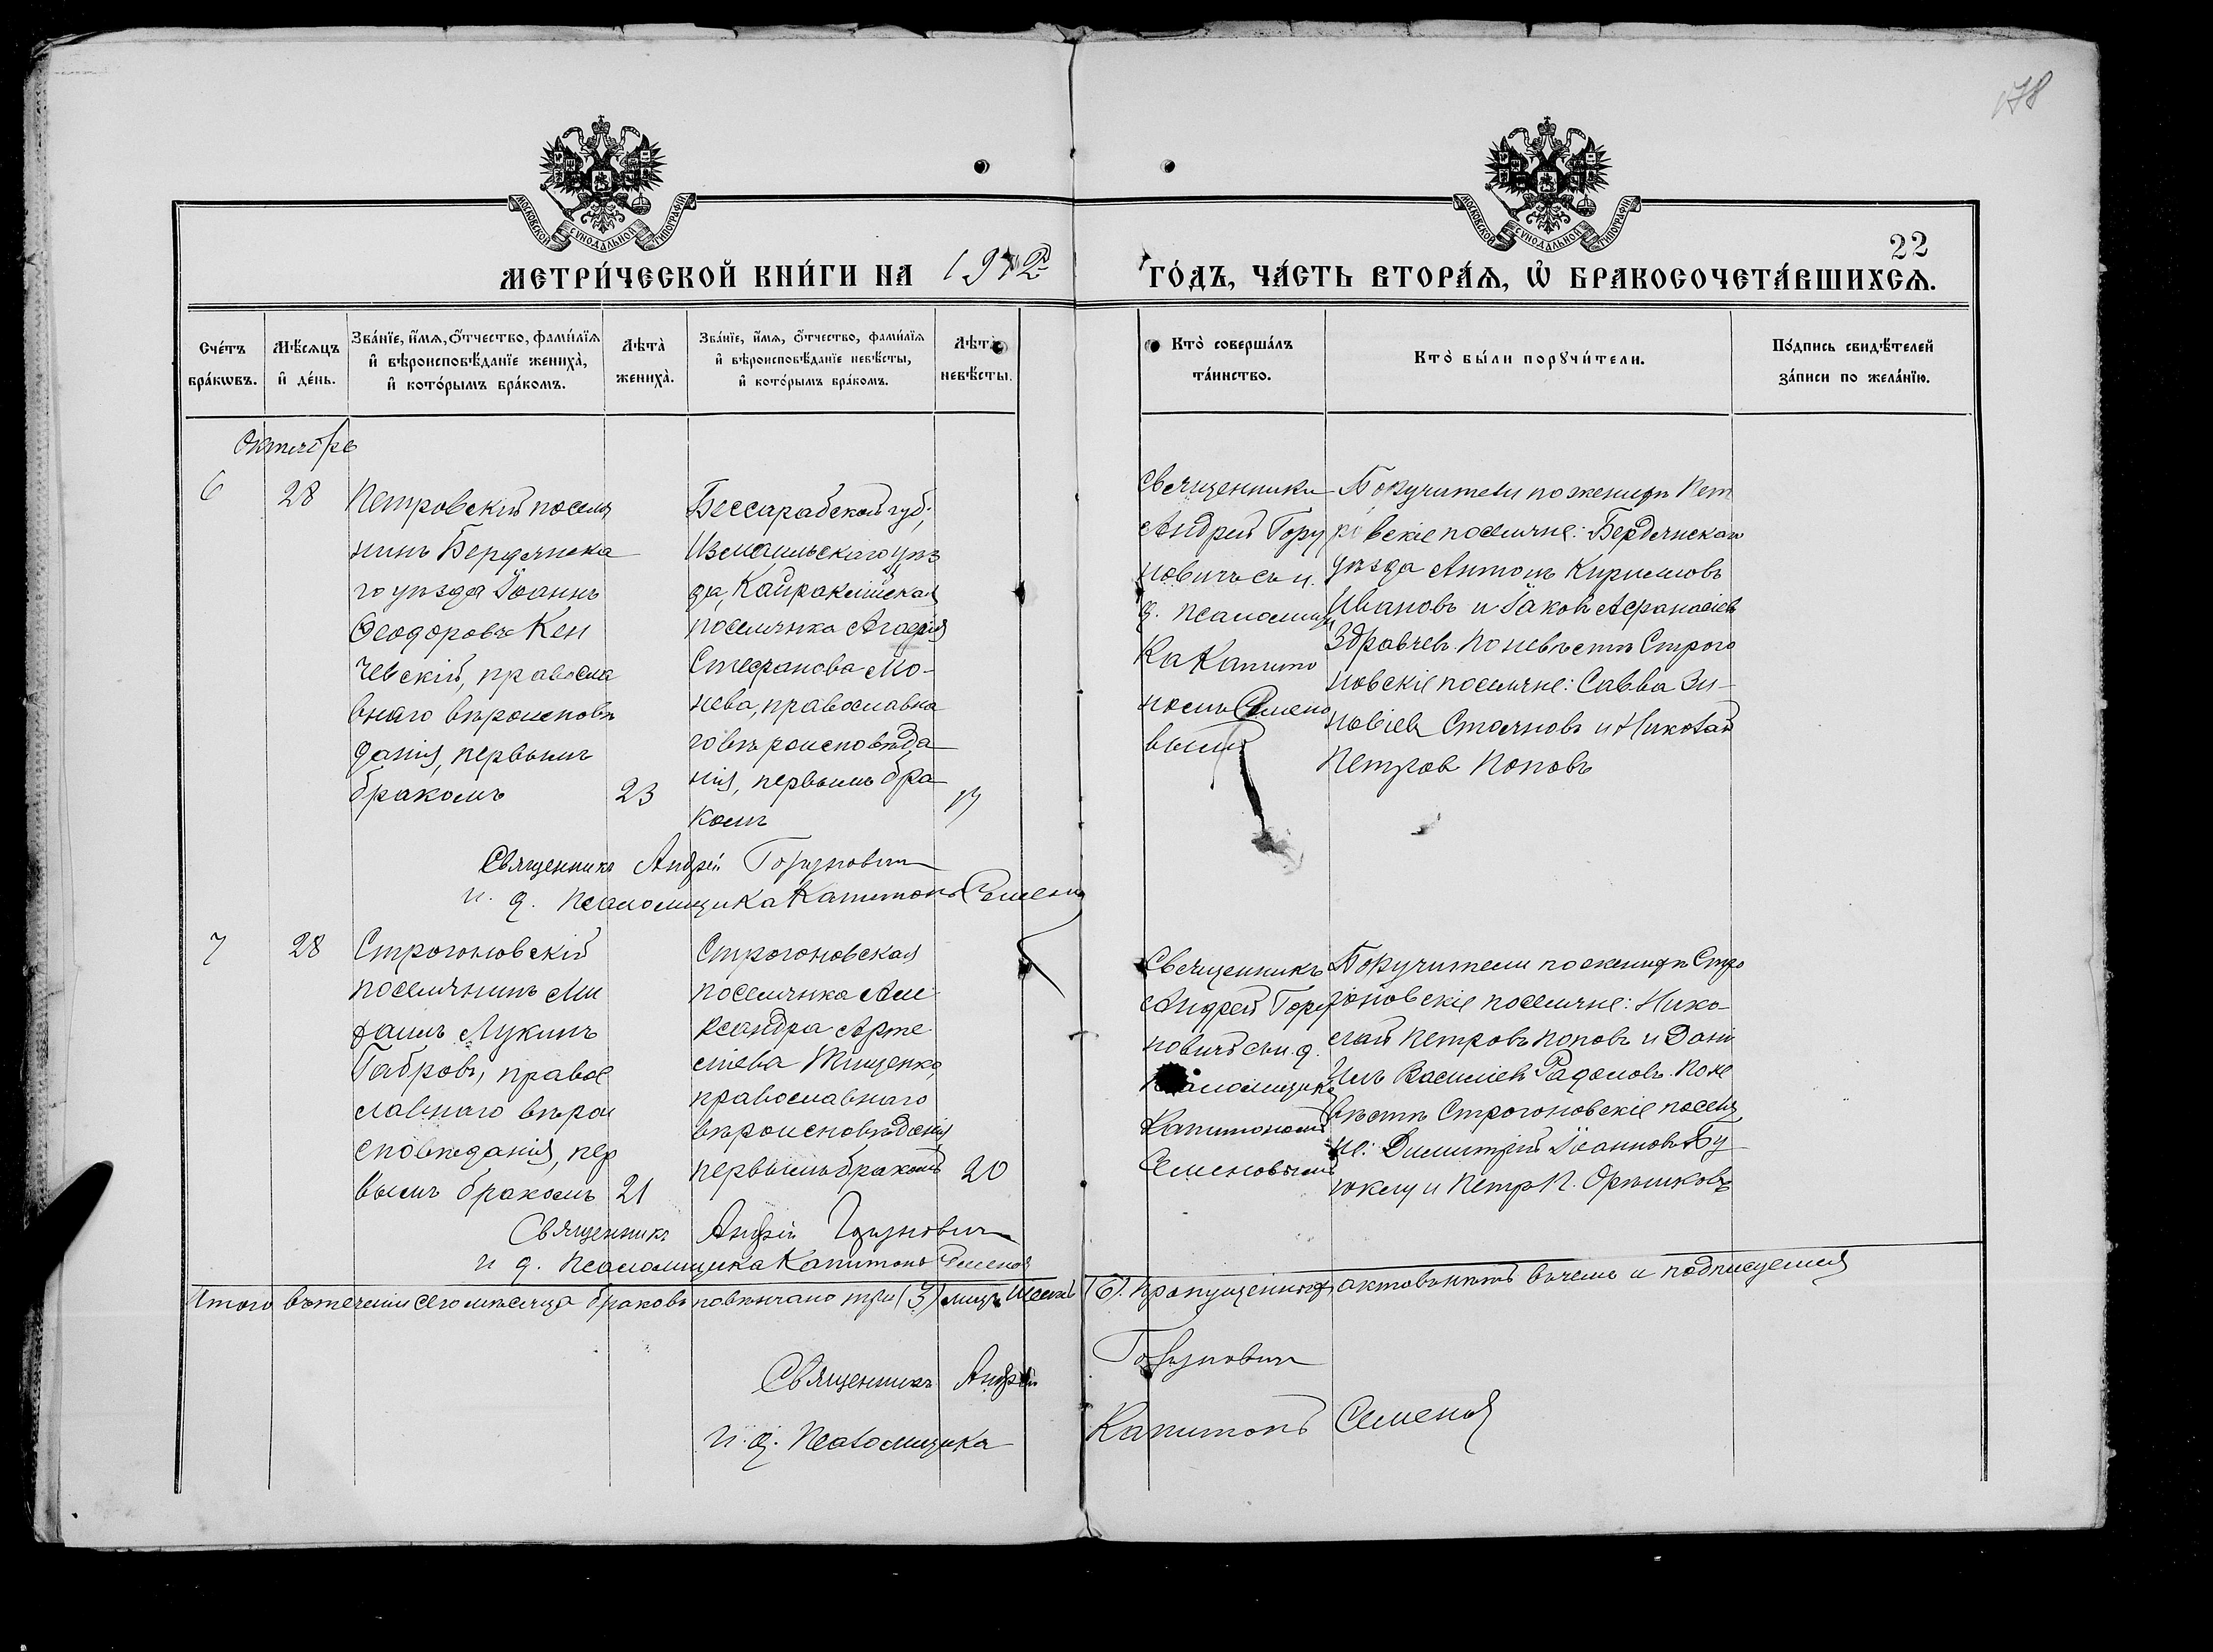 178
МОСКОВСКОЙ СѴНОДАЛЬНОЙ ТИПОГРАФІИ
МОСКОВСКОЙ СѴНОДАЛЬНОЙ ТИПОГРАФІИ
22
МЕТРИ́ЧЕСКОЙ КНИ́ГИ НА 1912 ГО́ДЪ, ЧА́СТЬ ВТОРА́Ѧ, Ѽ БРАКОСОЧЕТА́ВШИХСѦ.
Сче́тъ
бра́кѡвъ.
Мѣ́сѧцъ
и҆ де́нь.
Зва́нїе, и҆́мѧ, ѻ҆́тчество, фами́лїѧ
и҆ вѣроисповѣ́данїе жениха̀,
и҆ кото́рымъ бра́комъ.
Лѣта̀
жениха̀.
Зва́нїе, и҆́мѧ, ѻ҆́тчество, фами́лїѧ
и҆ вѣроисповѣ́данїе невѣ́сты,
и҆ кото́рымъ бра́комъ.
Лѣта̀
невѣ́сты.
Кто̀ соверша́лъ
та́инство.
Кто̀ бы́ли порꙋчи́тели.
По́дпись свидѣ́телей
за́писи по жела́нїю.
Октябрь
6
28
Петровскій поселя
нинъ Бердянска
го уѣзда Іоаннъ
Ѳеодоровъ Кен
чевскій, правосла
внаго вѣроисповѣ
данія, первымъ
бракомъ
23
Бессарабской губ.,
Измаильскаго уѣз
да, Кайраклійская
поселянка Агафія
Стефанова Мо-
нева, православна
го вѣроисповѣда
нія, первымъ бра
комъ
19
Священники
Андрей Гору
новичъ съ и.
д. псаломщи
ка Капито
номъ Семено
вымъ
Поручители по женихѣ Пет
ровскіе поселяне: Бердянскаго
уѣзда Антонъ Кирилловъ
Ивановъ и Іаковъ Аѳанасіев
Здравчев. По невѣстѣ Строго
новскіе поселяне: Савва Зи-
новіев Стояновъ и Николай
Петров Поповъ
Священникъ Андрей Горуновичъ
и. д. псаломщика Капитонъ Семенов
7
28
Строгоновскій
поселянинъ Ми
хаилъ Лукинъ
Габровъ, правос
лавнаго вѣрои
сповѣданія, пер
вымъ бракомъ
21
Строгоновская
поселянка Але
ксандра Арте
міева Тищенко,
православнаго
вѣроисповѣданія
первымъ бракомъ
20
Священникъ
Андрей Гору
новичъ съ и. д.
псаломщика
Капитономъ
Семеновымъ
Поручители по женихѣ Стро
гоновскіе поселяне: Нико-
лай Петровъ Поповъ и Дани
илъ Василіев Радоловъ. По не
вѣстѣ Строгоновскіе поселя
не: Димитрій Іоаннов Бу
юклу и Петр П. Орѣшковъ
Священникъ Андрей Горуновичъ
и д. псаломщика Капитонъ Семенов
Итого въ теченіи сего мѣсяца браковъ повѣнчано три (3) лицъ шесть (6). Пропущенныхъ актовъ нѣтъ въ чемъ и подписуемся
Священникъ Андрей Горуновичъ
И. д. Псаломщика Капитонъ Семенов